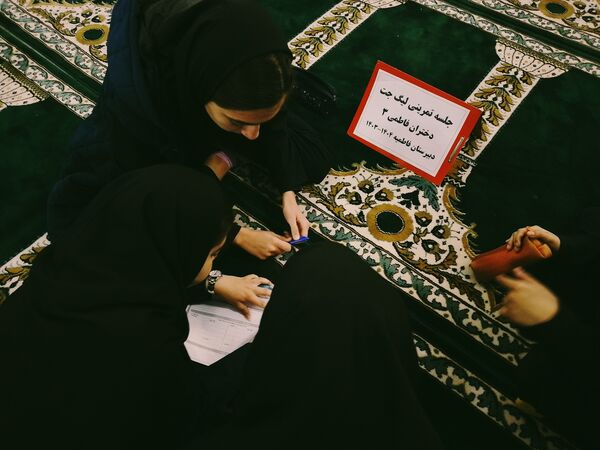 جلسه تمرینی لیگ جت
دختران فاطمی ۳
دبیرستان فاطمیه ۱۴۰۴-۱۴۰۳